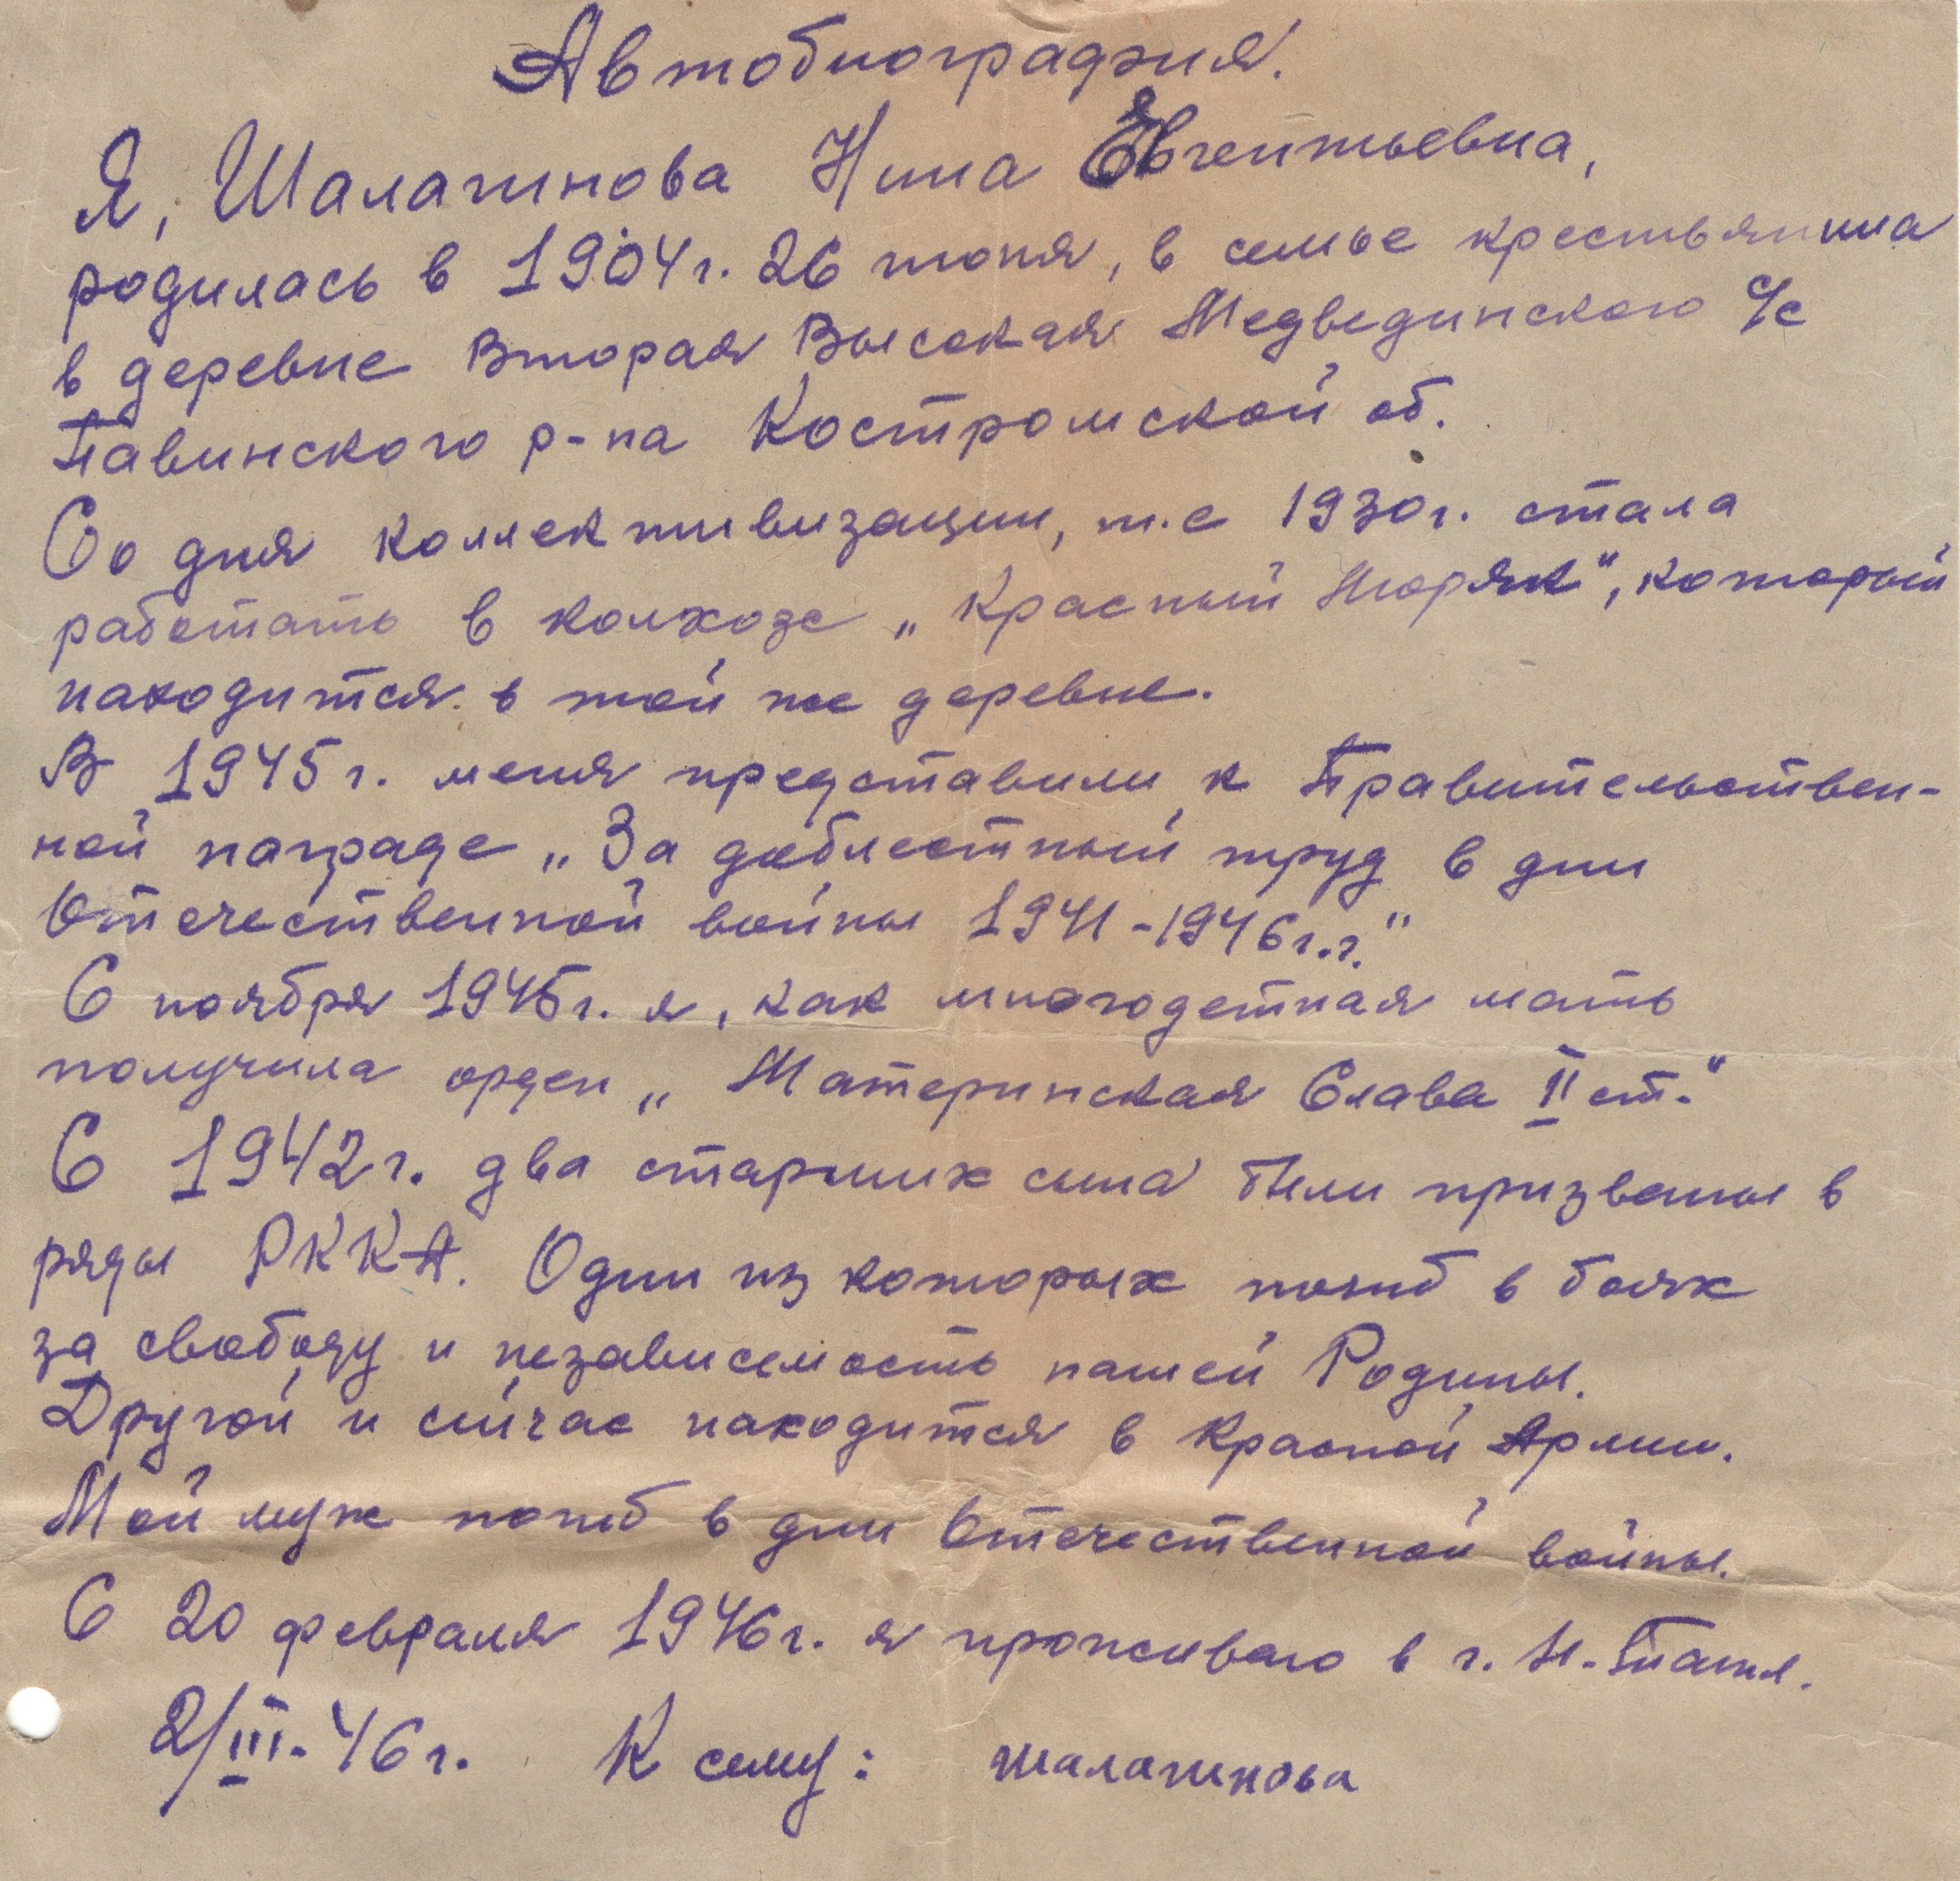 Автобиография.
Я, Шалагинова Нина Евгентьевна,
родилась в 1904г. 26 июня, в семье крестьянина
в деревне Вторая Высокая Медведицкого с/с
Павинского р-на Костромской об.
Со дня коллективизации, т.е 1930г. стала
работать в колхозе „Красный Моряк“, который
находится в той же деревне.
В 1945г. меня представили к Правительствен-
ной награде „За доблестный труд в дни
Отечественной войны 1941-1946г.г.“
С ноября 1945г. я, как многодетная мать
получила орден „Материнская Слава II ст.“
С 1942г. два старших сына были призваны в
ряды РККА. Один из которых погиб в боях
за свободу и независемость нашей Родины.
Другой и сейчас находится в Красной Армии.
Мой муж погиб в дни Отечественной войны.
С 20 февраля 1946г. я проживаю в г. Н-Тагил.
2/III-46г. К сему: Шалагинова